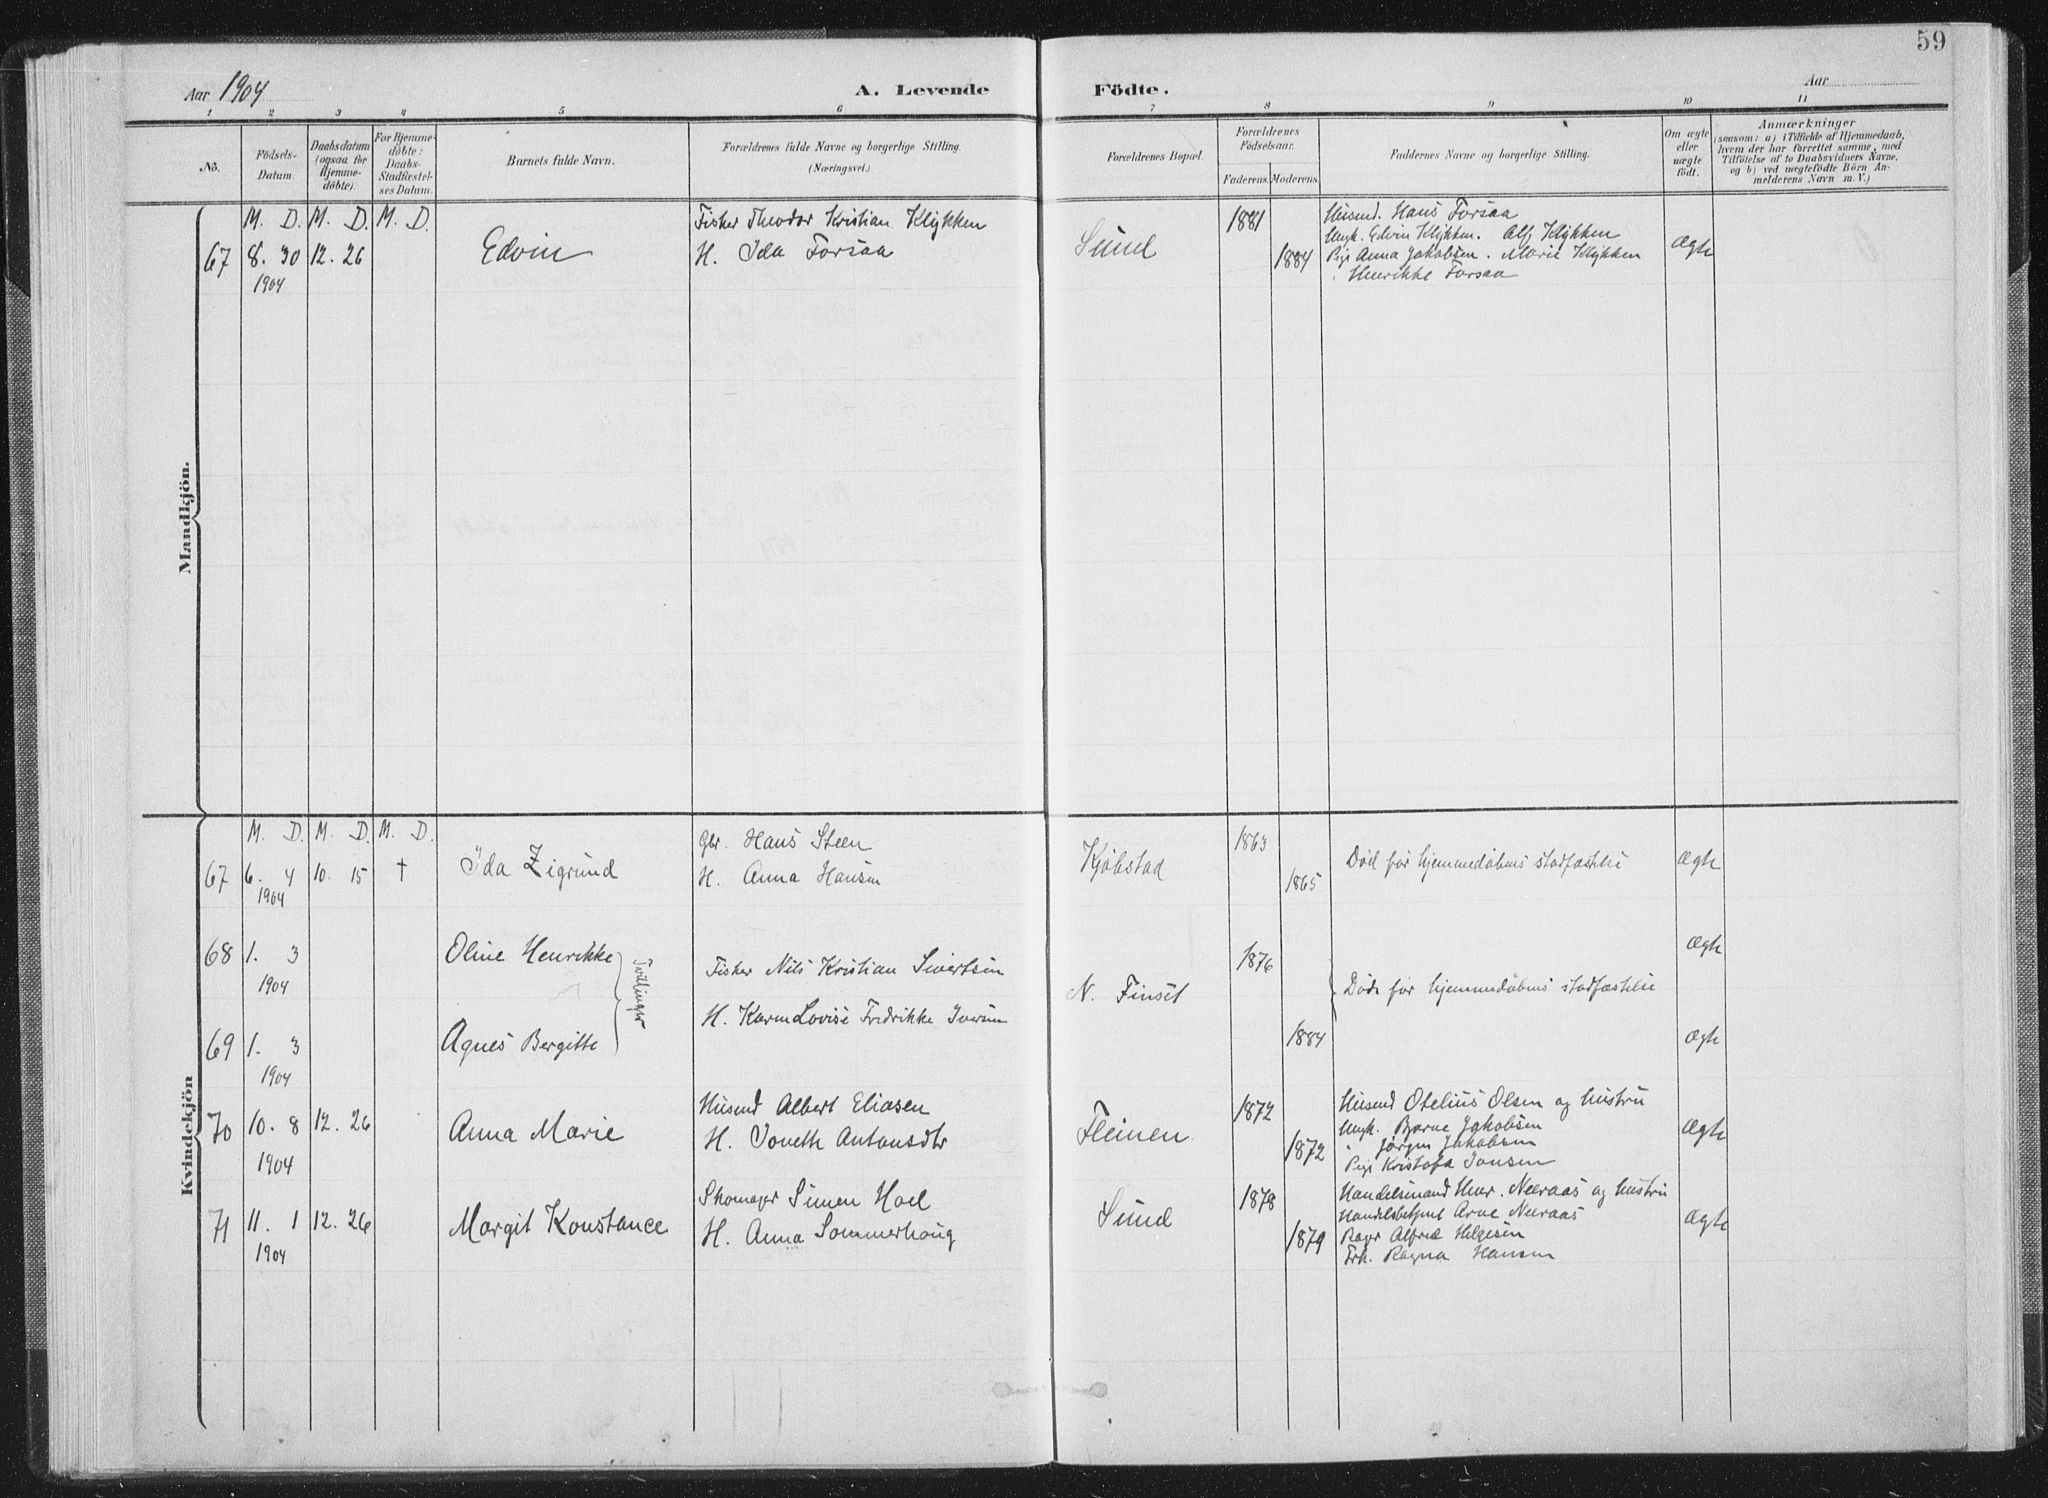 59
Aar 1904
A. Levende Födte.
Aar
1 2 3 4 5 6 7 8 9 10 11
No.
Födsels-Datum.
Daabsdatum (ogsaa for Hjemme-döbte).
For Hjemme-döbte: Daabs-Stadfæstel-ses Datum.
Barnets fulde Navn.
Forældrenes fulde Navne og borgerlige Stilling. (Næringsvei.)
Forældrenes Bopæl.
Forældrenes Födselsaar.
Faderens. Moderens.
Faddernes Navne og borgerlige Stilling.
Om ægte eller uægte födt.
Anmærkninger
(saasom: a) i Tilfælde af Hjemmedaab, hvem der har forrettet samme, med Tilföielse af to Daabsvidners Navne, og b) ved uægtefödte Börn An-melderens Navn m. V.)
Mandkjön.
M. D. M. D. M. D.
67 8. 30 12. 26 Edvin
1904
Fisker Theodor Kristian Klykken
H. Ida Forsaa
Sund
1881
1884
Husmd. Hans Forsaa
Ungk. Edvin Klykken. Alf Klykken
Pige Anna Jakobsen. Marie Klykken
Henrikke Forsaa
Ægte
Kvindekjön
M. D. M. D. M. D.
67 6. 4 10. 15 † Ida Zigrund
1904
Gbr. Hans Steen
H. Anna Hansen
Kjöbstad
1863
1865
Död før hjemmedøbens stadfæstelse
Ægte
68 1. 3 Oline Henrikke
1904
Tvillinger
Fisker Nils Kristian Sivertsen
H. Karen Lovise Fredrikke Iversen
N. Finset
1876
1884
Døde før hjemmedøbens stadfæstelse
Ægte
69 1. 3 Agnes Bergitte
1904
Ægte
70 10. 8 12. 26 Anna Marie
1904
Husmd Albert Eliasen
H. Joneth Antonsdtr
Fleinen
1872
1872
Husmd Otelius Olsen og hustru
Ungk. Bjarne Jakobsen
" Jørgen Jakobsen
Pige Kristofa Jonsen
Ægte
71 11. 1 12. 26 Margit Konstance
1904
Skomager Simen Hoel
H. Anna Sommerhoug
Sund
1878
1879
Handelsmand Henr. Neeraas og hustru
Handelsbetjent Arne Neeraas
Bager Alfred Helgesen
Frk. Ragna Hansen
Ægte